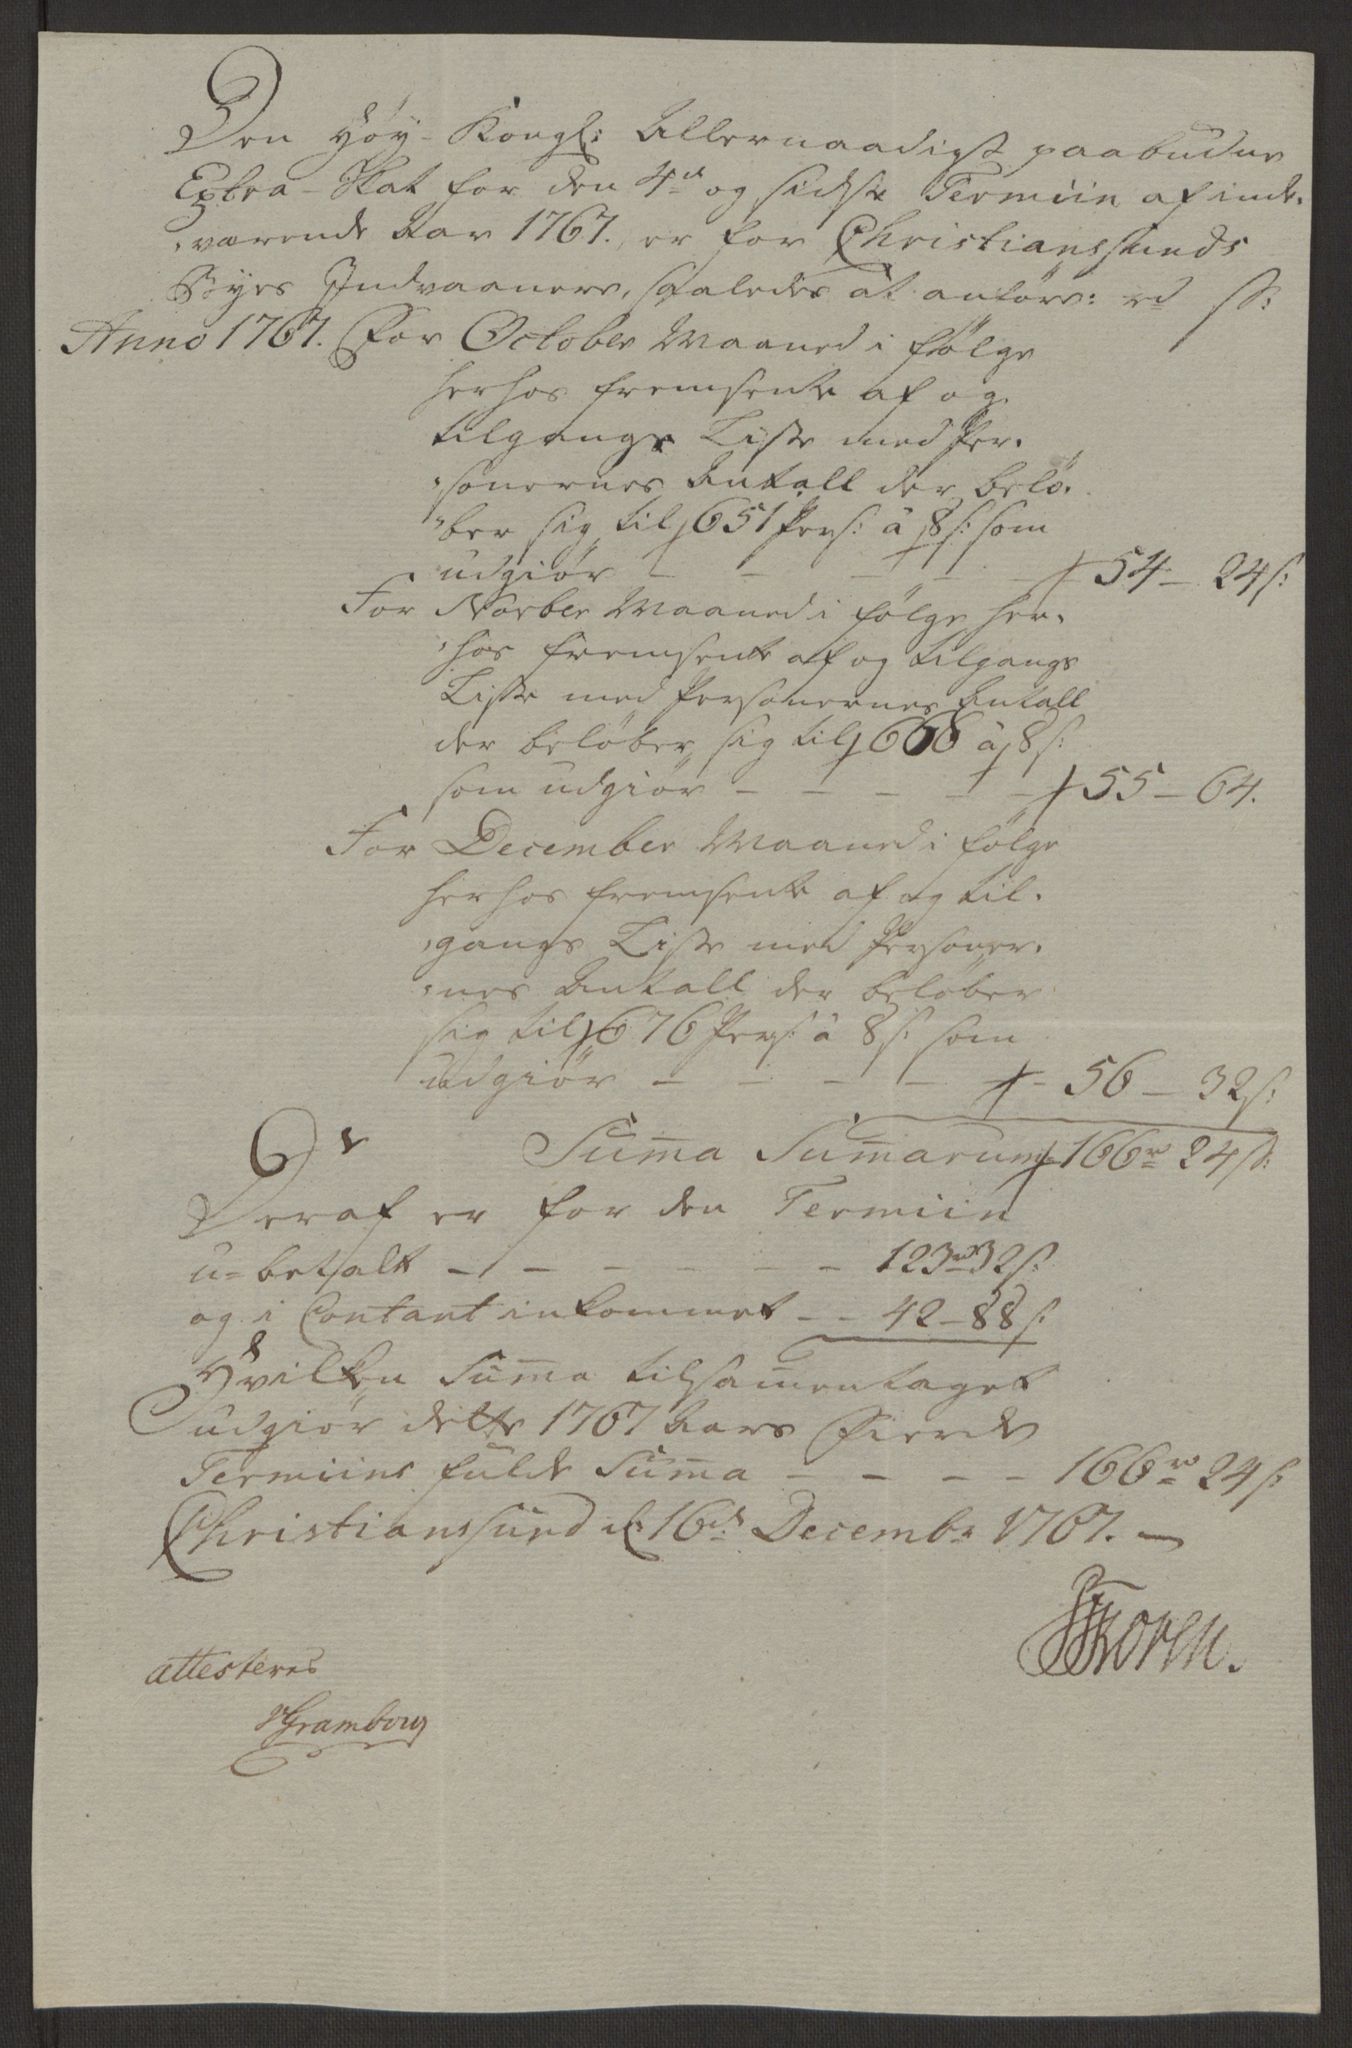 Den Høy-Kongl: Allernaadigst paabudne
Extra-Skat for den 4de og sidste Termiin af inde,
,værende Aar 1767. er for Christianssunds
Byes Indvaanere, saaledes at anføre: rd s:
Anno 1767. For October Maaned i følge
herhos fremsendte af og
tilgangs Liste med Per,
,sonernes Antall der belø,
,ber sig til 651 Pers: à 8 s: som
udgiør - - - - - 54 - 24 s:
For Novber Maaned i følge her,
,hos fremsendte af og tilgangs
Liste med Personernes Antall
der beløber sig til 668 à 8 s:
som udgiør - - - - - 55 - 64.
For December Maaned i følge
herhos fremsendte af og til,
,gangs Liste med Personer,
,nes Antall der beløber
sig til 676 Pers: à 8 s: som
udgiør - - - - - 56 - 32 s:
Sum̄a Sum̄arum 166 rd 24 s:
Deraf er for den Termiin
u-betalt - - - - - - 123 rd 32 s:
og i Contant inkommet - - 42 - 88 s:
Hvilken Sum̄a tilsam̄entaget
udgiør dette 1767 Aars Fierde
Termiins fulde Sum̄a - - - - 166 rd 24 s:
Christianssund d: 16de Decembr 1767. -
Koren.
attesteres
Gramborg